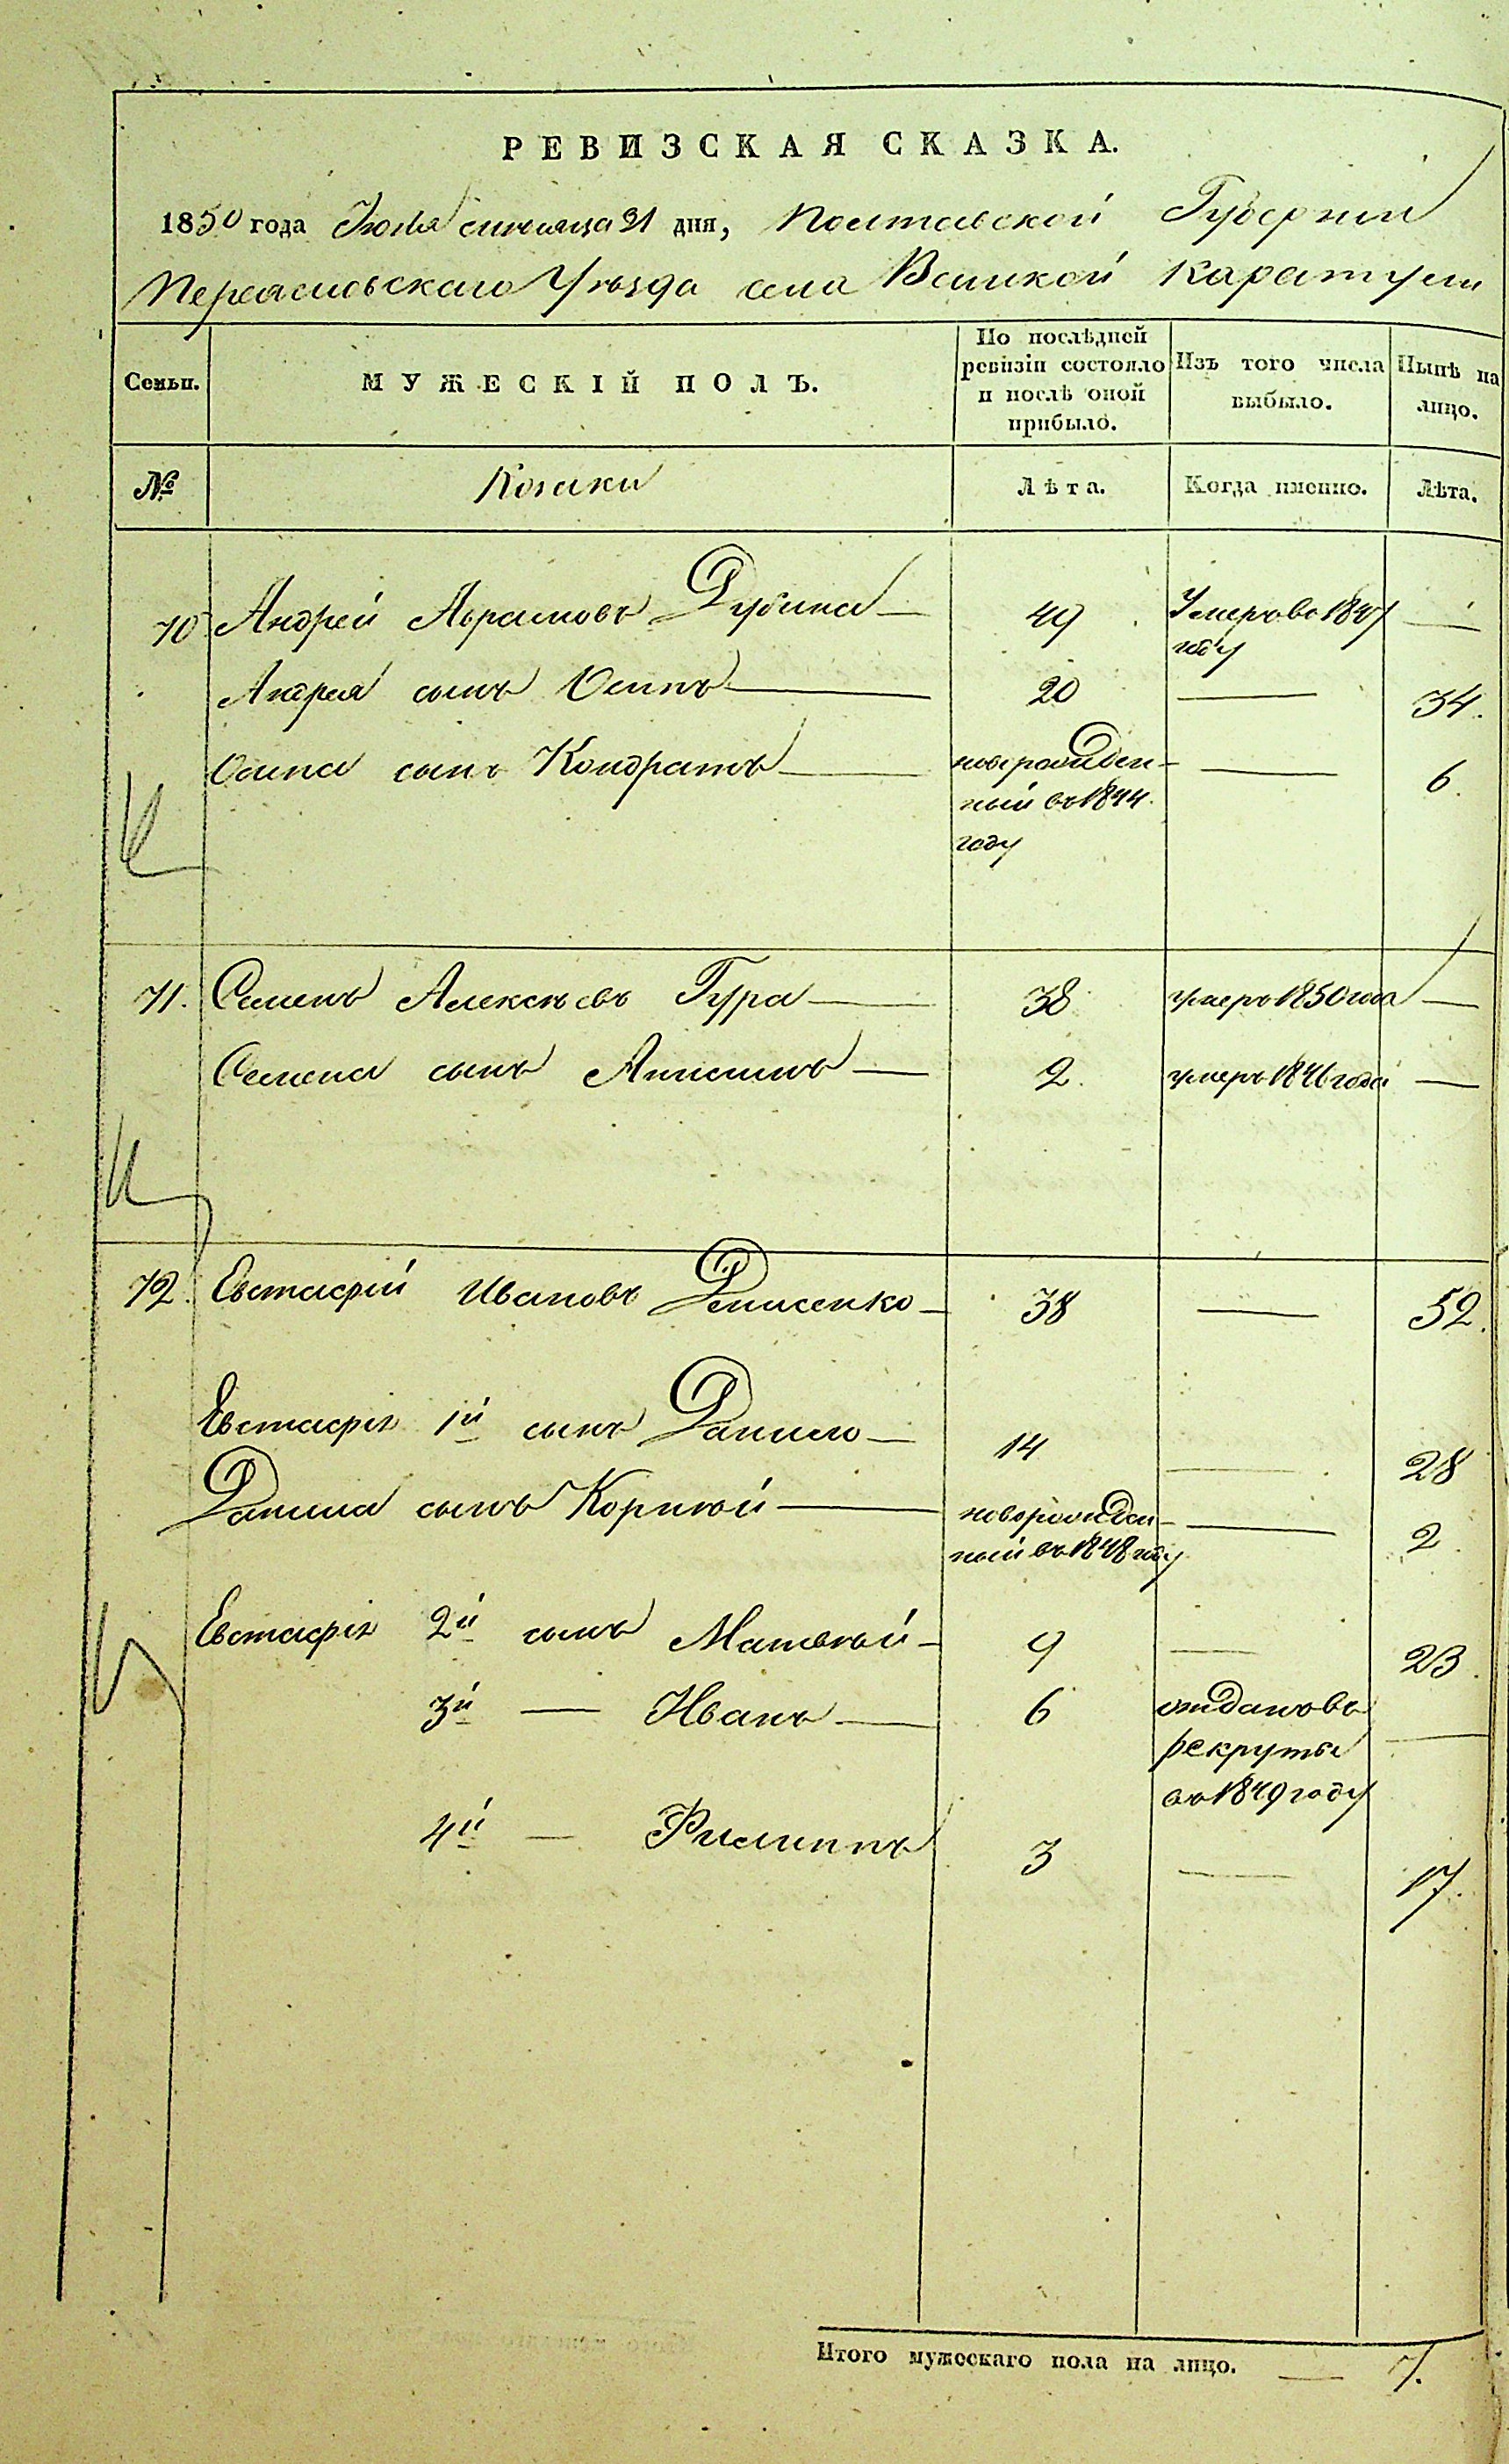 РЕВИЗСКАЯ СКАЗКА.
1850 года Июля мѣсяца 31 дня, Полтавской Губернии
Переаславскаго Уѣзда села Великой Каратули
Семьи.
МУЖЕСКІЙ ПОЛЪ.
По послѣдней ревизіи состояло и послѣ оной прибыло.
Изъ того числа выбыло.
Нынѣ на лицо.
№ Козаки Лѣта. Когда именно. Лѣта.
70 Андрей Аврамовъ Дубина — 49 Умеръ во 1847 —
году
Андрея сынъ Осипъ — 20 — 34.
Осипа сынъ Кондратъ — новорожден- — 6.
ный въ 1844
году
71. Семенъ Алексѣевъ Гура — 38 умеръ 1850 года —
Семена сынъ Анисимъ — 2. умеръ 1846 года —
72. Евстафій Ивановъ Денисенко — 38 — 52.
Евстафія 1й сынъ Данило — 14 — 28
Данила сынъ Корнѣй — новорожден- — 2.
ный въ 1848 году
Евстафія 2й сынъ Матвѣй — 9 — 23.
3й — Иванъ — 6 отданъ въ —
рекруты
въ 1849 году
4й — Филиппъ 3 — 17.
Итого мужескаго пола на лицо. — 7.